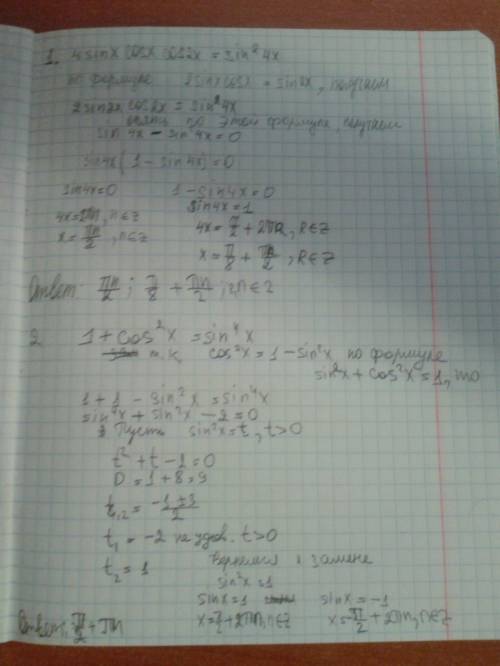 1. 4sinx cosx cos2x = sin²4x
по формуле 2sinxcosx = sin2x, получаем
2sin2x cos2x = sin²4x
опять по этой формуле, получаем
sin4x - sin²4x = 0
sin4x(1 - sin4x) = 0
sin4x = 0 1 - sin4x = 0
sin4x = 1
4x = 2πn, n∈Z 4x = π/2 + 2πk, k∈Z
x = πn/2, n∈Z x = π/8 + πn/2, k∈Z
Ответ: πn/2; π/8 + πn/2, n∈Z
2. 1 + cos²x = sin⁴x
т.к. cos²x = 1 - sin²x по формуле
sin²x + cos²x = 1, то
1 + 1 - sin²x = sin⁴x
sin⁴x + sin²x - 2 = 0
Пусть sin²x = t, t>0
t² + t - 2 = 0
D = 1 + 8 = 9
t₁,₂ = (-1 ± 3)/2
t₁ = -2 не удов. t>0
t₂ = 1 Вернемся к замене
sin²x = 1
sinx = 1 sinx = -1
x = π/2 + 2πn, n∈Z x = -π/2 + 2πn, n∈Z
Ответ: π/2 + πn